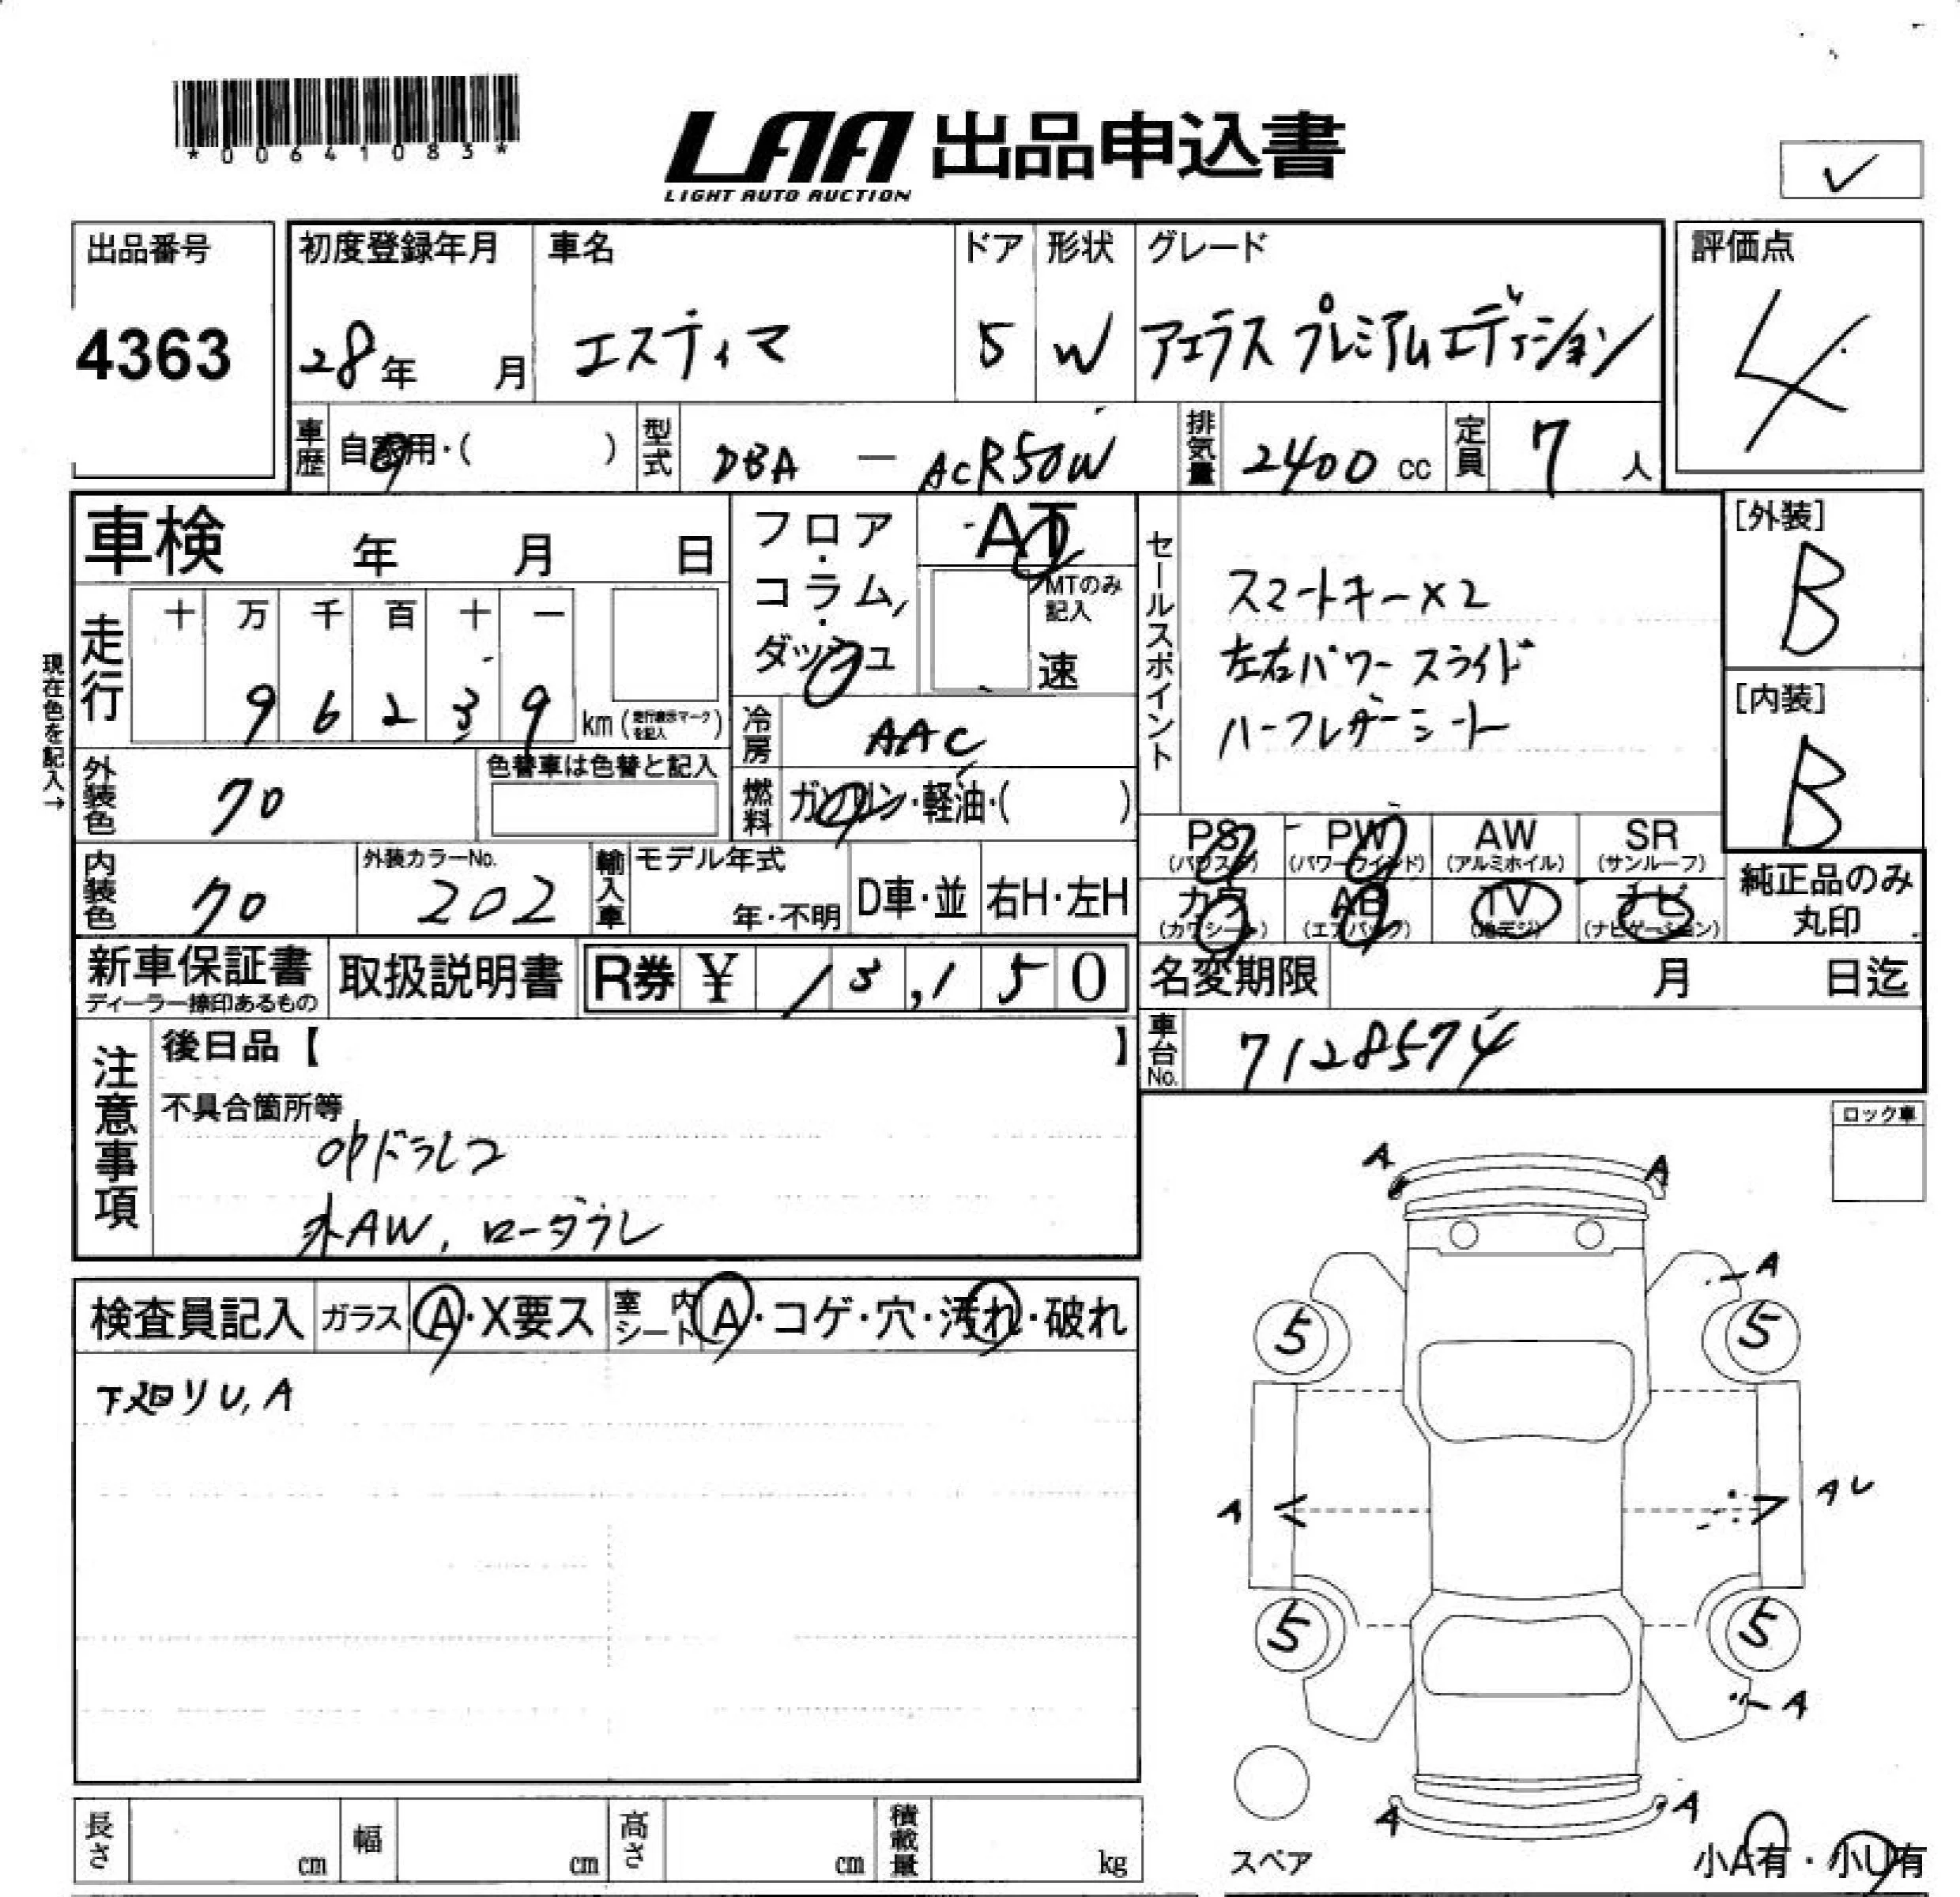 *00641083*
LAA 出品申込書
LIGHT AUTO AUCTION
✓
出品番号
4363
初度登録年月
28年 月
車名
エスティマ
ドア
5
形状
W
グレード
アエラス プレミアムエディション
評価点
4
車歴
自家用・( )
型式
DBA — ACR50W
排気量
2400 cc
定員
7 人
車検 年 月 日
フロア・コラム・ダッシュ
AT
MTのみ記入
速
セールスポイント
スマートキー×2
左右パワースライド
ハーフレザーシート
[外装]
B
[内装]
B
現在色を記入→
走行
十 万 千 百 十 一
9 6 2 3 9 km (走行表示マークを記入)
冷房
AAC
燃料
ガソリン・軽油・( )
外装色
クロ
色替車は色替と記入
内装色
クロ
外装カラーNo.
202
輸入車
モデル年式
年・不明
D車・並
右H・左H
PS (パワステ)
PW (パワーウインド)
AW (アルミホイル)
SR (サンルーフ)
カワ (カワシート)
AB (エアバッグ)
TV (地デジ)
ナビ (ナビゲーション)
純正品のみ
丸印
新車保証書
ディーラー捺印あるもの
取扱説明書
R券 ¥ 13,150
名変期限 月 日迄
車台No.
7128574
注意事項
後日品【 】
不具合箇所等
ドラレコ
AW, ローダウン
ロック車
検査員記入
ガラス A・X要ス
室内シート A・コゲ・穴・汚れ・破れ
下廻りU, A
A A
A
5 5
A AU
5 5
A
A A
スペア
小A有・小U有
長さ cm
幅 cm
高さ cm
積載量 kg